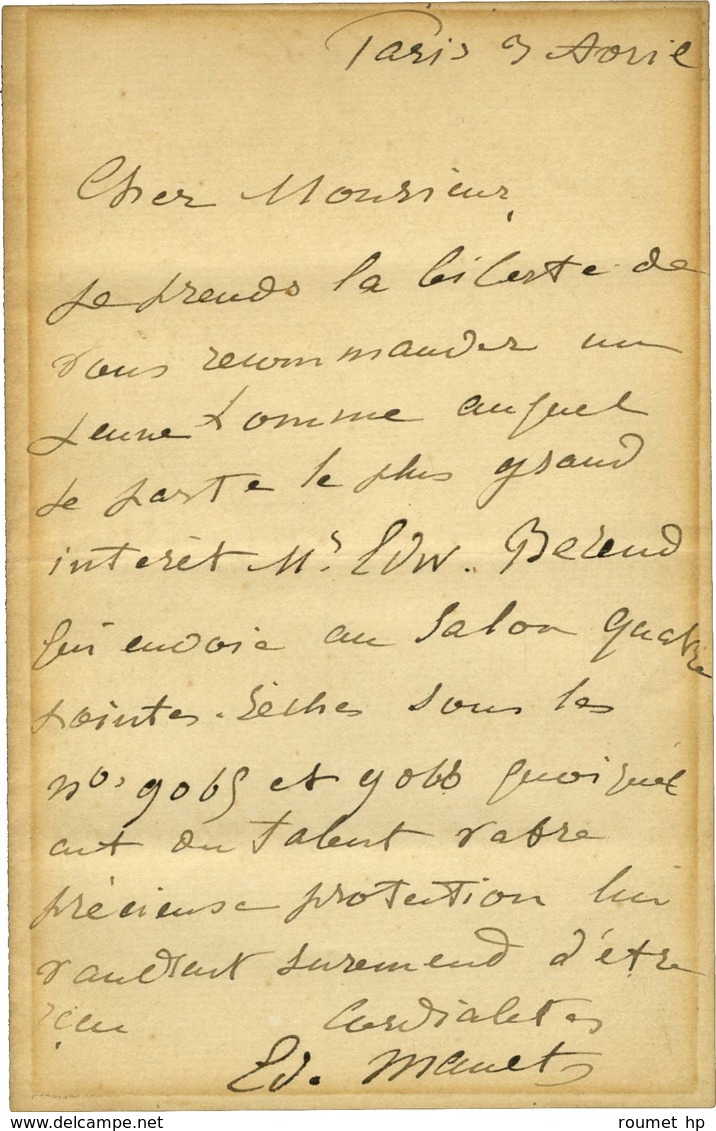 Paris 3 Avril
Cher Monsieur,
je prends la liberté de
vous recommander un
jeune homme auquel
je porte le plus grand
intérêt Mr. Edw. Berend
qui envoie au Salon quatre
pointes-sèches sous les
nos 9065 et 9066 quoiqu'il
ait du talent votre
précieuse protection lui
vaudrait surement d'être
reçu
Cordialités
Ed. Manet
roumet hp